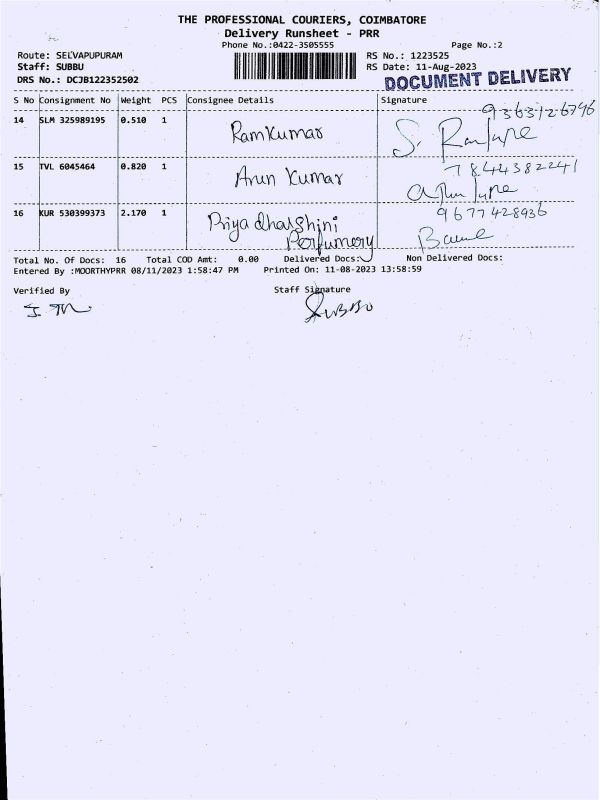 THE PROFESSIONAL COURIERS, COIMBATORE
Delivery Runsheet - PRR
Phone No.:0422-3505555 Page No.:2
Route: SELVAPUPURAM RS No.: 1223525
Staff: SUBBU RS Date: 11-Aug-2023
DRS No.: DCJB122352502 DOCUMENT DELIVERY
S No Consignment No Weight PCS Consignee Details Signature
9363126796
14 SLM 325989195 0.510 1 RamKumar S.
15 TVL 6045464 0.820 1 Arun Kumar 7844382241
16 KUR 530399373 2.170 1 Priya dharshini 9677428936
Perfumery
Total No. Of Docs: 16 Total COD Amt: 0.00 Delivered Docs: Non Delivered Docs:
Entered By :MOORTHYPRR 08/11/2023 1:58:47 PM Printed On: 11-08-2023 13:58:59
Verified By Staff Signature
SUBBU